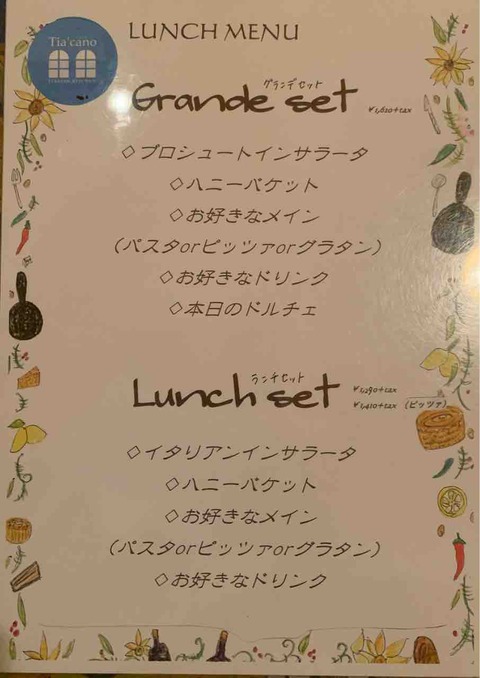 Tia'cano
LUNCH MENU
グランデセット
Grande set ¥1,620+tax
◇プロシュートインサラータ
◇ハニーバケット
◇お好きなメイン
(パスタorピッツァorグラタン)
◇お好きなドリンク
◇本日のドルチェ
ランチセット
Lunch set ¥1,290+tax
¥1,410+tax (ピッツァ)
◇イタリアンインサラータ
◇ハニーバケット
◇お好きなメイン
(パスタorピッツァorグラタン)
◇お好きなドリンク